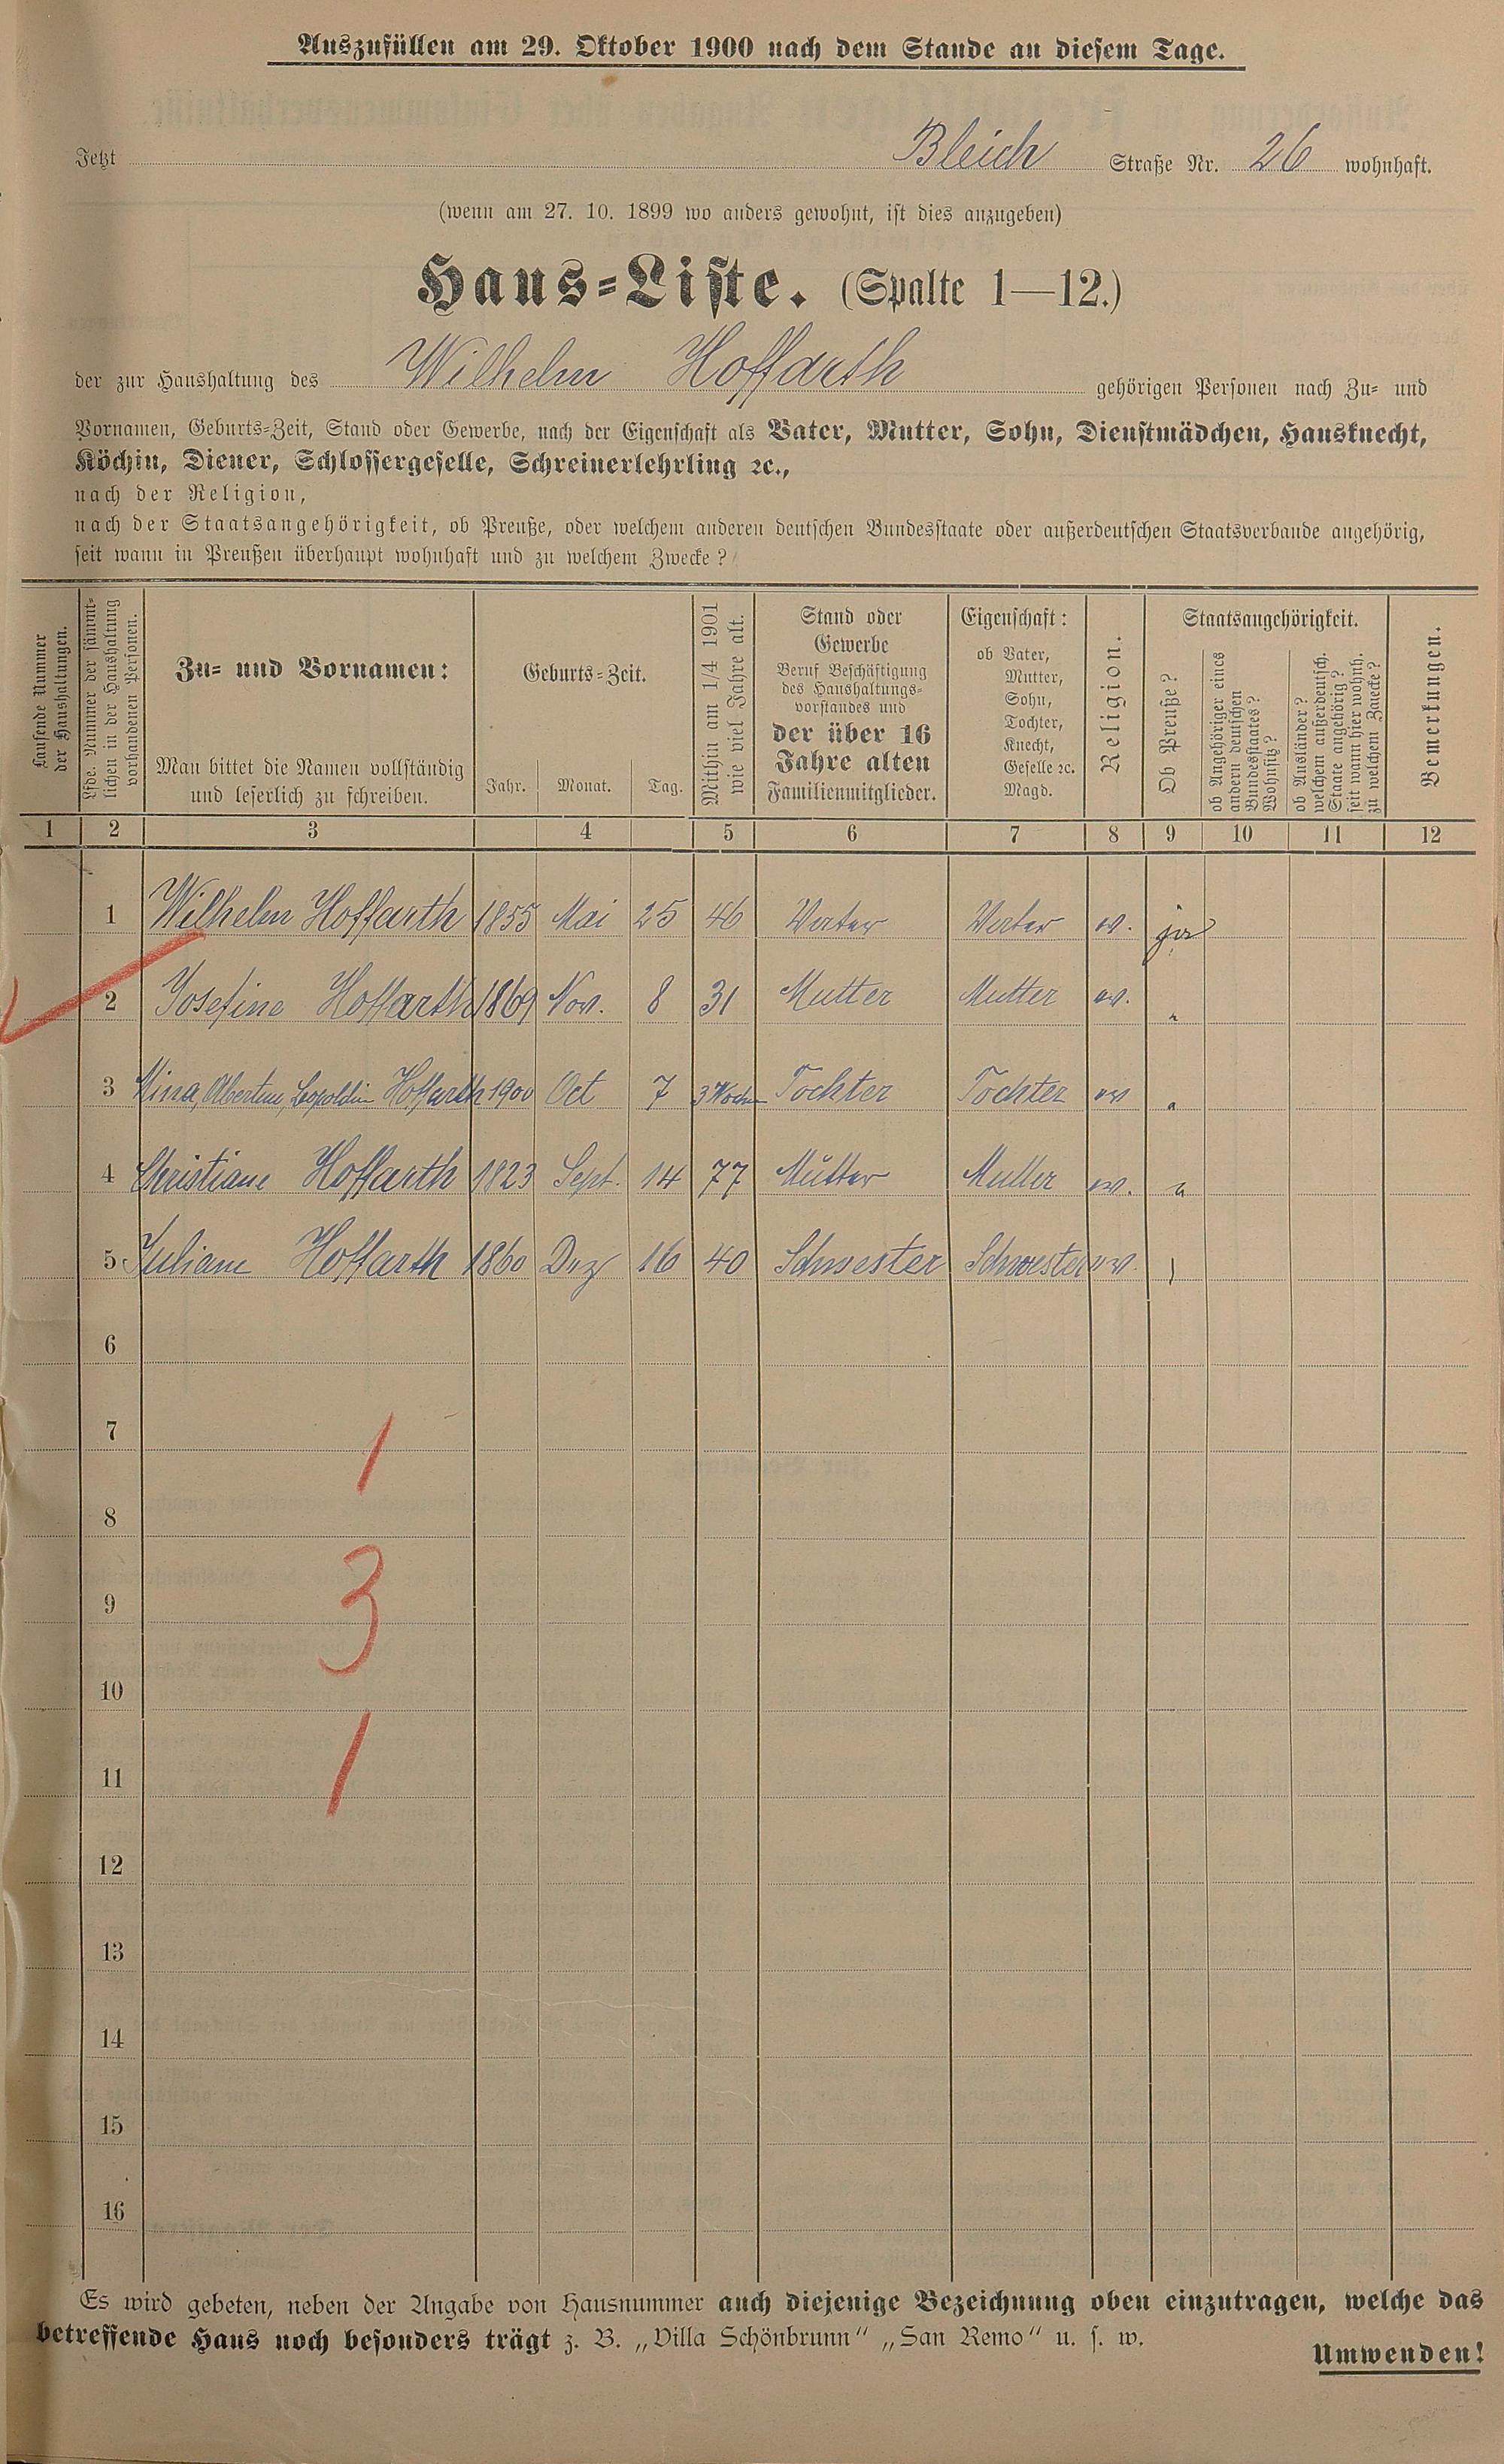 Auszufüllen am 29. Oktober 1900 nach dem Stande an diesem Tage.
Jetzt Bleich Straße Nr. 26 wohnhaft.
(wenn am 27. 10. 1899 wo anders gewohnt, ist dies anzugeben)
Haus-Liste. (Spalte 1—12.)
der zur Haushaltung des Wilhelm Hoffarth gehörigen Personen nach Zu- und
Vornamen, Geburts-Zeit, Stand oder Gewerbe, nach der Eigenschaft als Vater, Mutter, Sohn, Dienstmädchen, Hausknecht,
Köchin, Diener, Schlossergeselle, Schreinerlehrling ꝛc.,
nach der Religion,
nach der Staatsangehörigkeit, ob Preuße, oder welchem anderen deutschen Bundesstaate oder außerdeutschen Staatsverbande angehörig,
seit wann in Preußen überhaupt wohnhaft und zu welchem Zwecke?
Laufende Nummer
der Haushaltungen.
Lfde. Nummer der sämmt-
lichen in der Haushaltung
vorhandenen Personen.
Zu- und Vornamen:
Man bittet die Namen vollständig
und leserlich zu schreiben.
Geburts-Zeit.
Jahr. Monat. Tag.
Mithin am 1/4 1901
wie viel Jahre alt.
Stand oder
Gewerbe
Beruf Beschäftigung
des Haushaltungs-
vorstandes und
der über 16
Jahre alten
Familienmitglieder.
Eigenschaft:
ob Vater,
Mutter,
Sohn,
Tochter,
Knecht,
Geselle ꝛc.
Magd.
Religion.
Staatsangehörigkeit.
Ob Preuße?
ob Angehöriger eines
andern deutschen
Bundesstaates?
Wohnsitz?
ob Ausländer?
welchem außerdeutsch.
Staate angehörig?
seit wann hier wohnh.
zu welchem Zwecke?
Bemerkungen.
1 2 3 4 5 6 7 8 9 10 11 12
1 Wilhelm Hoffarth 1855 Mai 25 46 ev. ja
2 Josefine Hoffarth 1869 Nov. 8 31 Mutter Mutter ev.
3 Mina, Albertine, Leopoldin Hoffarth 1900 Oct 7 3 Wochen Tochter Tochter ev
4 Christiane Hoffarth 1823 Sept. 14 77 Mutter Mutter ev.
5 Juliane Hoffarth 1860 Dez 16 40 Schwester Schwester ev.
6
7
1
8
9
3
10
11
1
12
13
14
15
16
Es wird gebeten, neben der Angabe von Hausnummer auch diejenige Bezeichnung oben einzutragen, welche das
betreffende Haus noch besonders trägt z. B. „Villa Schönbrunn“ „San Remo“ u. s. w.
Umwenden!